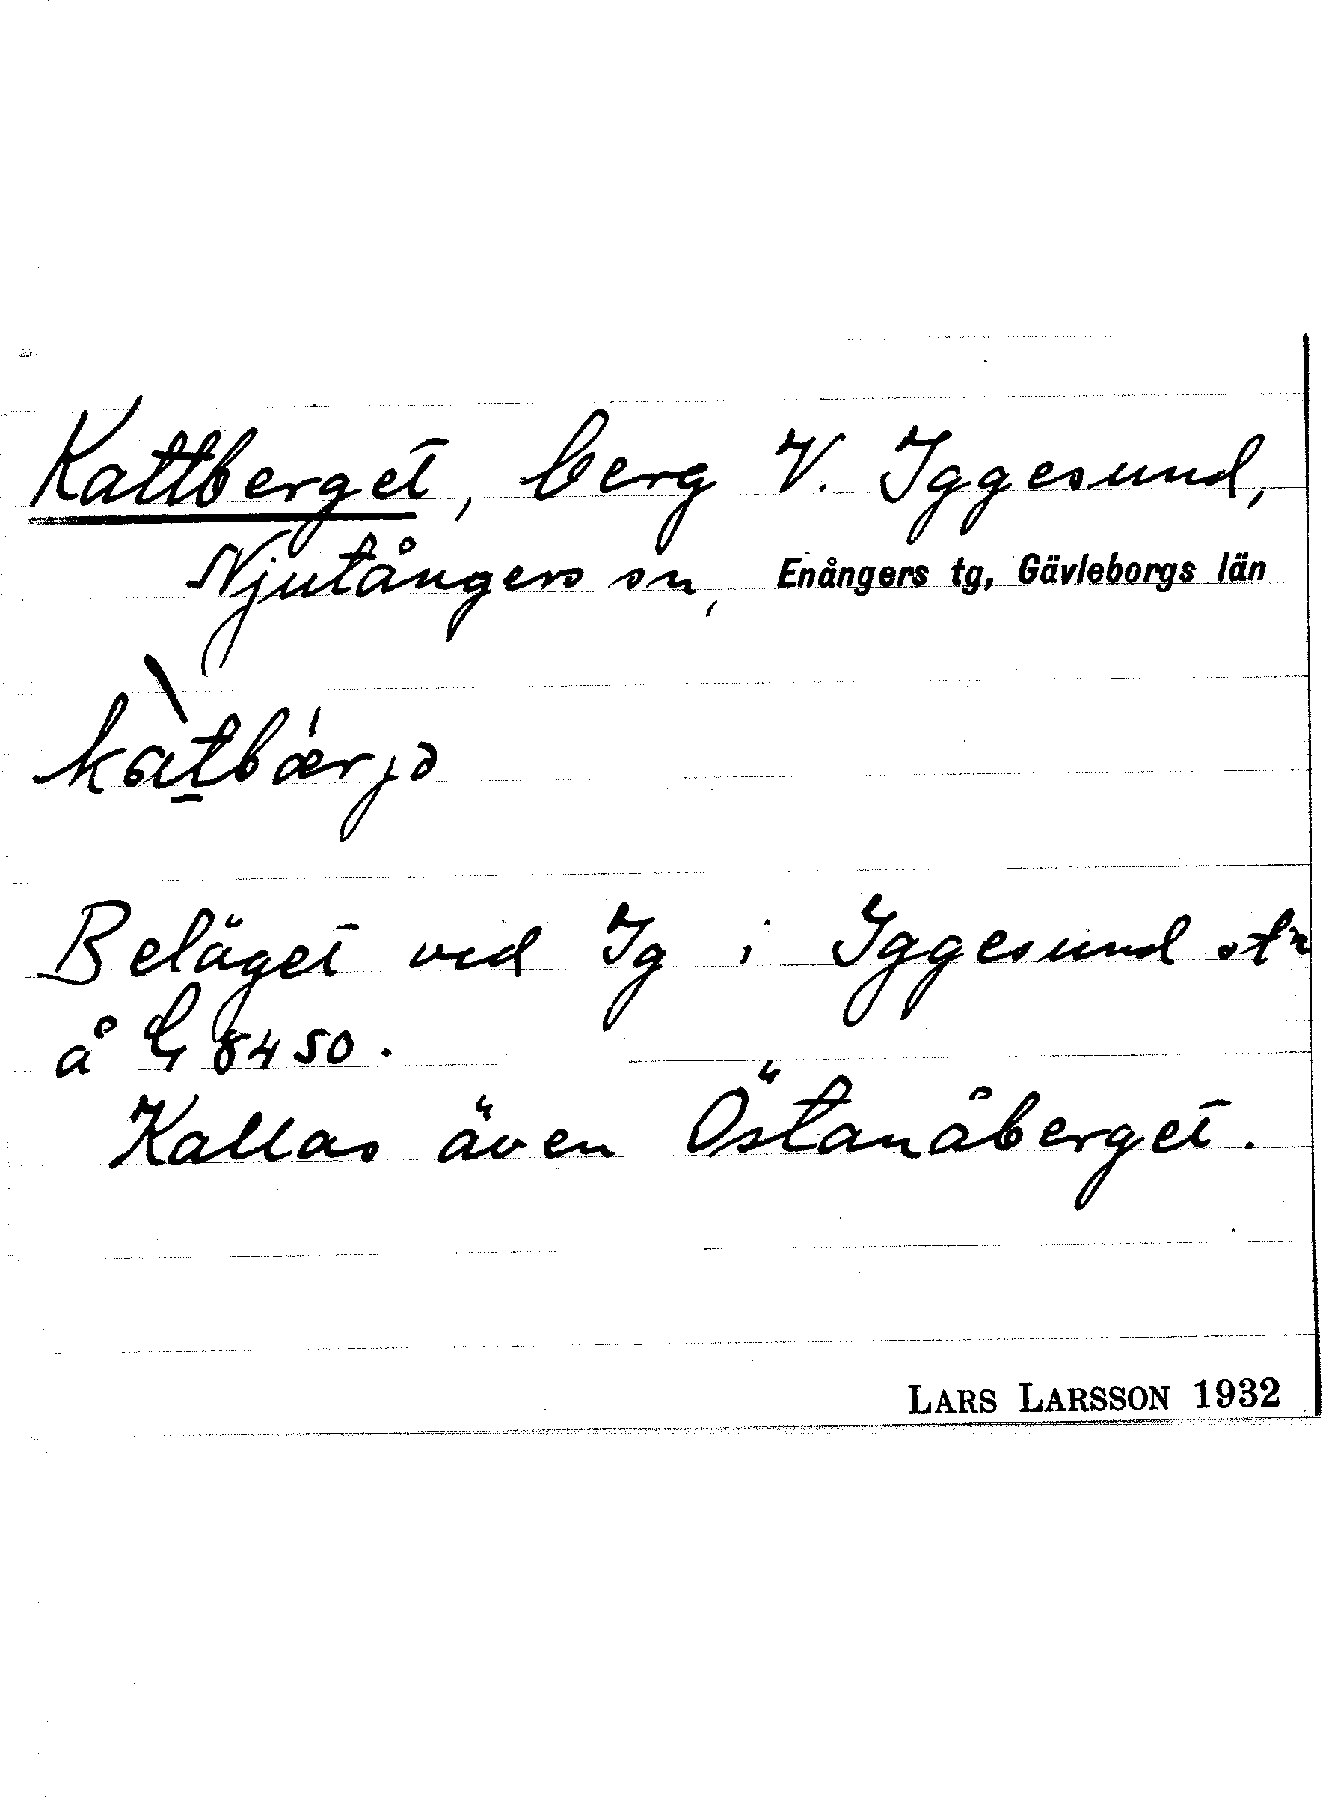 Kattberget, berg V. Iggesund,
Njutångers sn, Enångers tg, Gävleborgs län
kàtbǽrjə
Beläget vid Ig i Iggesund stn
å G 8450.
Kallas även Östanåberget.
LARS LARSSON 1932